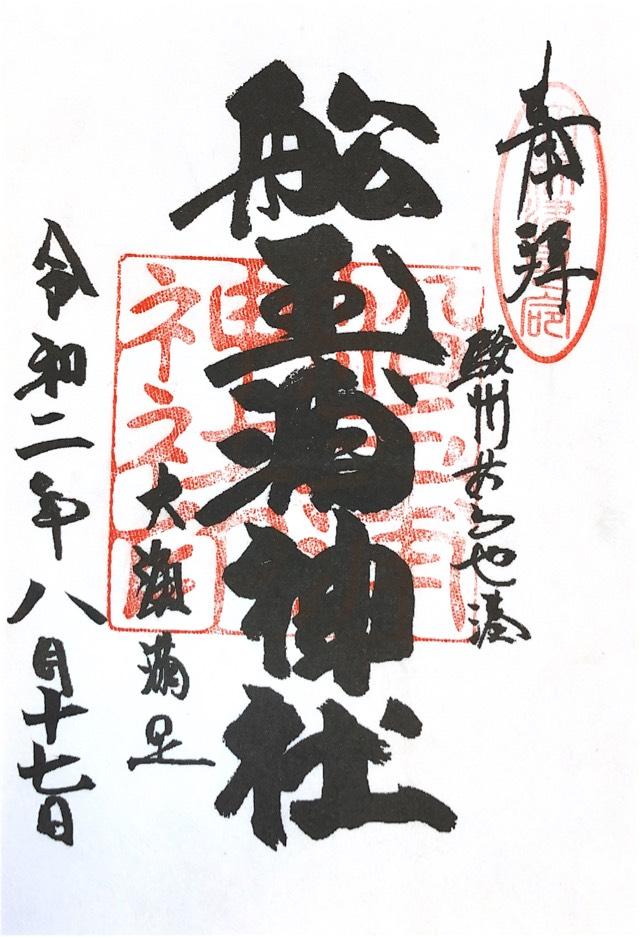 奉拝
駿州やゐ也湊
船玉浦神社
大漁満足
令和二年八月十七日